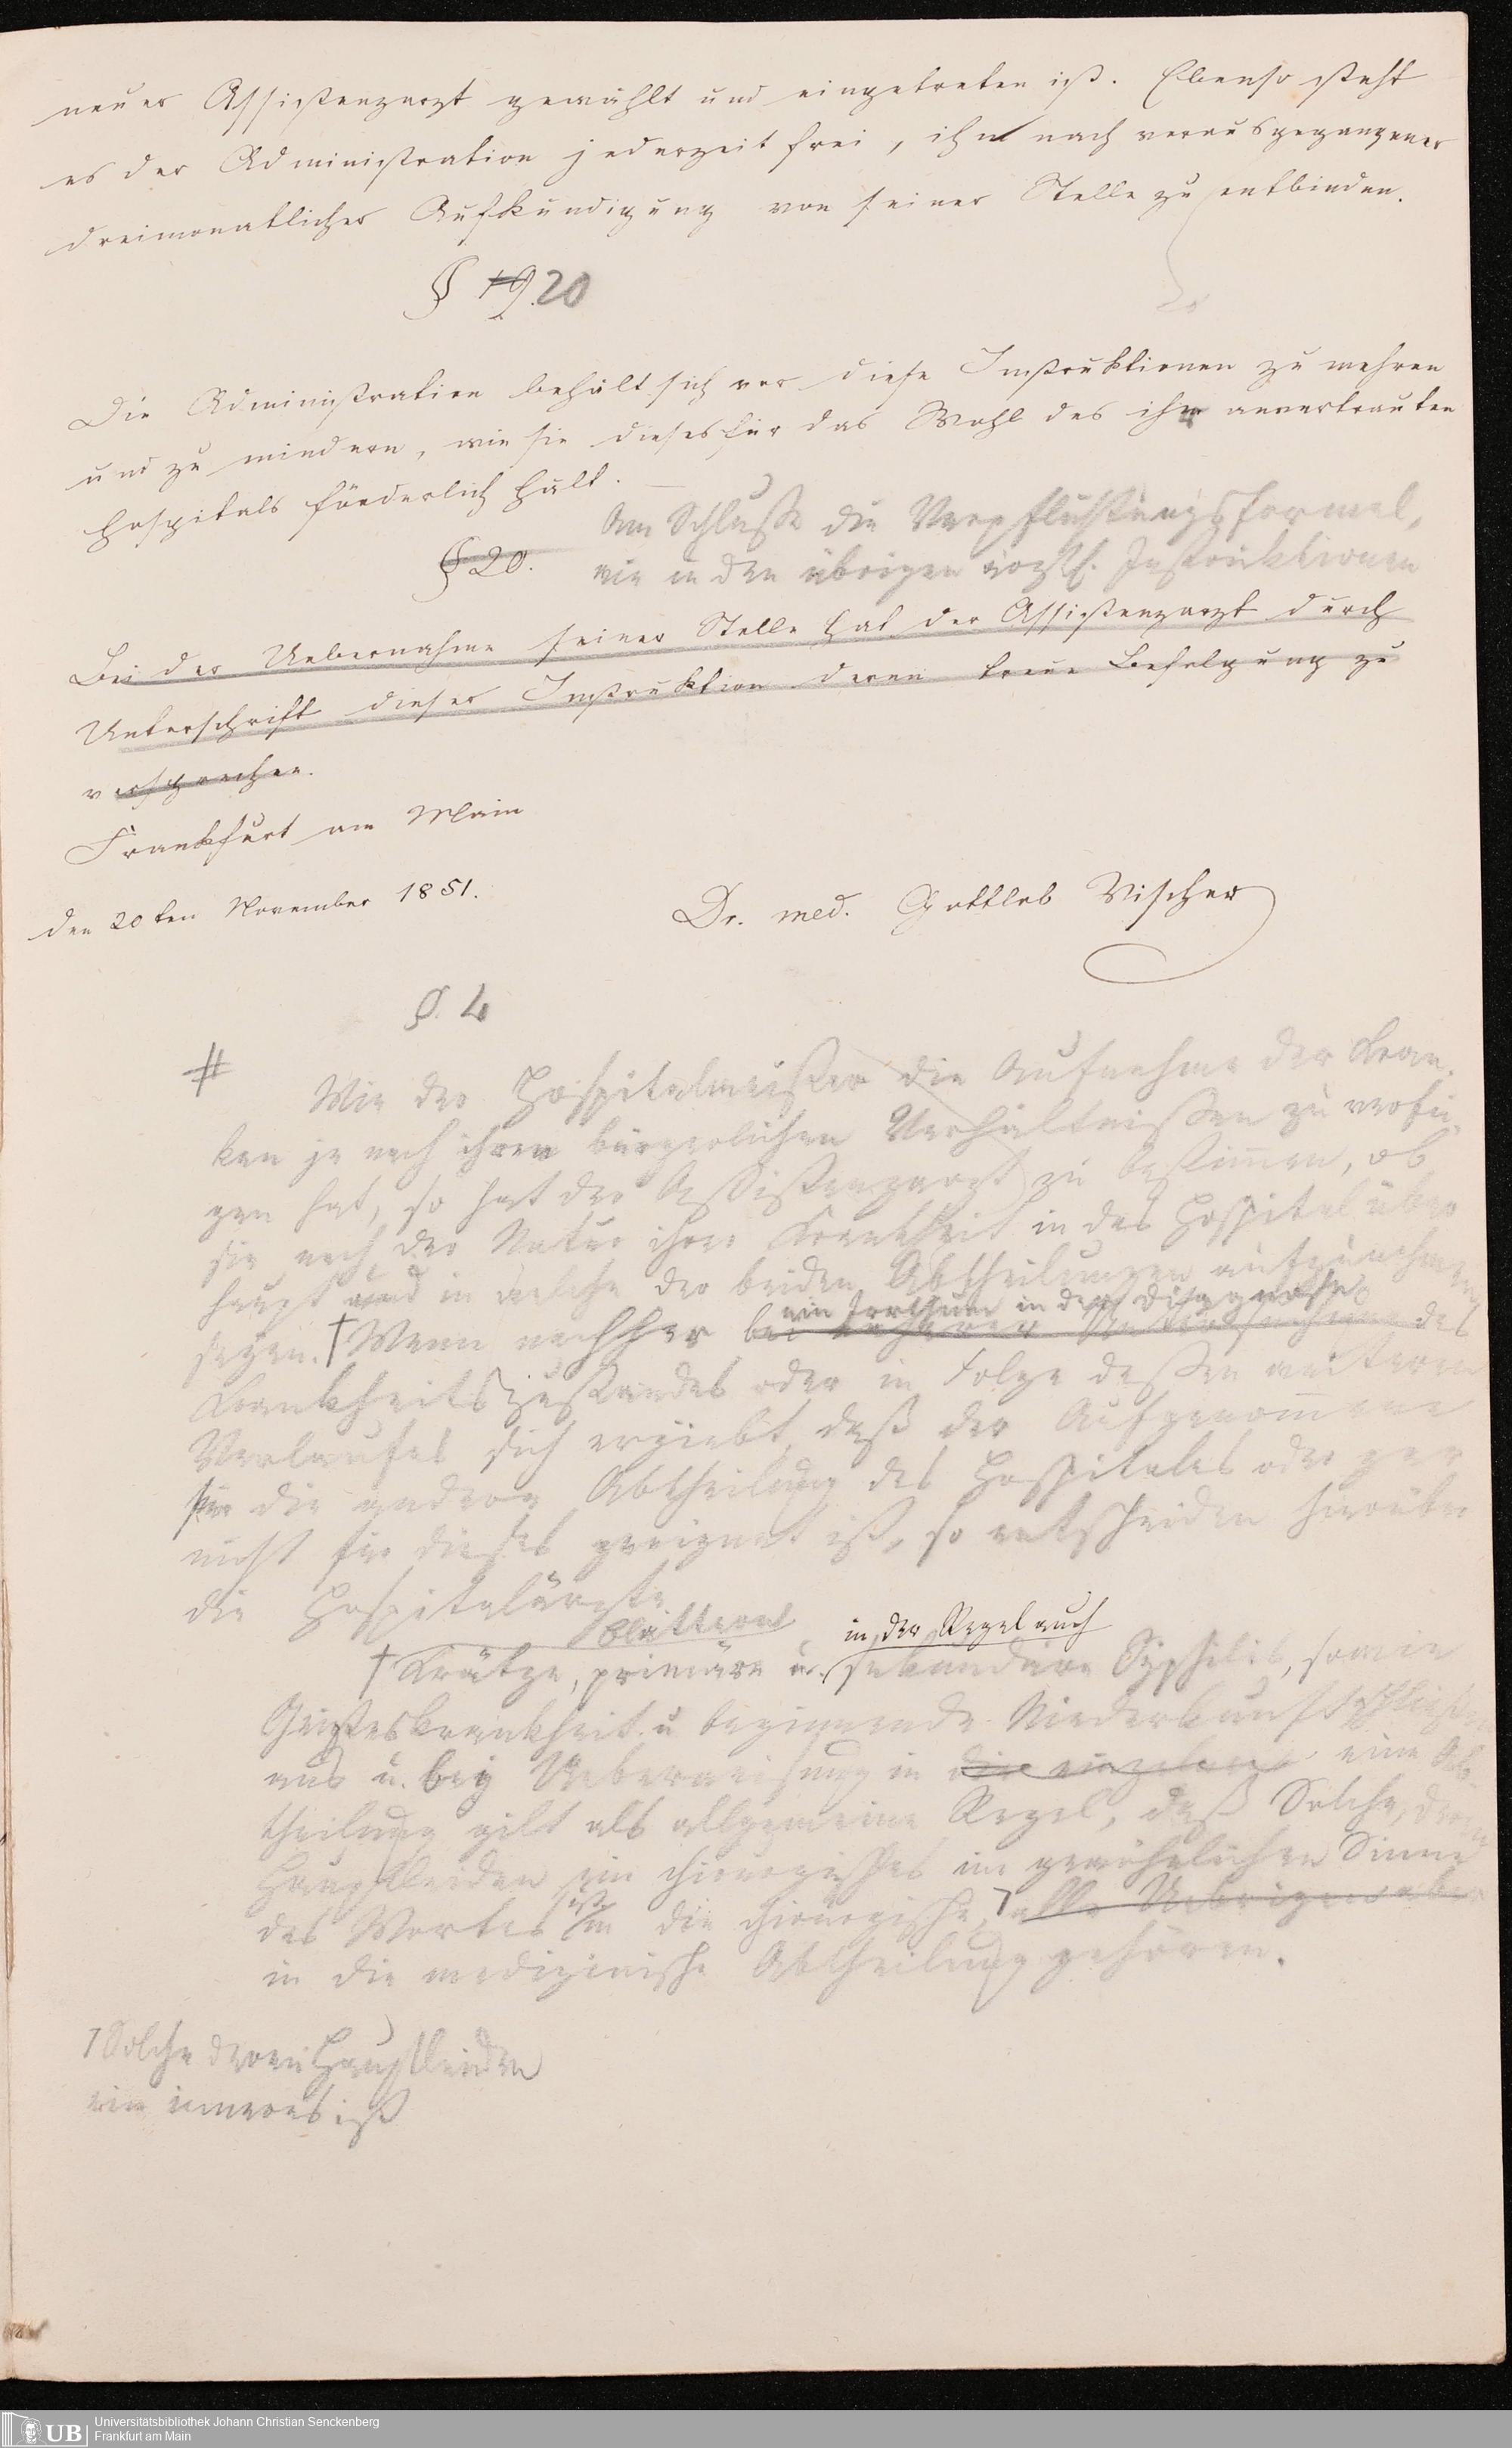 neuer Assistenzarzt gewählt und eingetreten ist. Ebenso steht
es der Administration jederzeit frei, ihn nach vorausgegangener
dreimonatlicher Aufkündigung von seiner Stelle zu entbinden.
§ 19. 20
Die Administration behält sich vor diese Instruktionen zu mehren
und zu mindern, wie sie dieses für das Wohl des ihr anvertrauten
Hospitals förderlich hält.
Am Schlusse die Verpflichtungsformel,
wie in den übrigen ärztl. Instruktionen
§ 20.
Bei der Uebernahme seiner Stelle hat der Assistenzarzt durch
Unterschrift dieser Instruktion deren treue Befolgung zu
versprechen.
Frankfurt am Main
den 20ten November 1851.
Dr. med. Gottlob Vischer
§. 4
#
Wie der Hospitalmeister die Aufnahme der Kran-
ken je nach ihren bürgerlichen Verhältnissen zu verfü-
gen hat, so hat der Assistenzarzt zu bestimmen, ob
sie nach der Natur ihrer Krankheit in das Hospital über
haupt und in welche der beiden Abtheilungen aufzunehmen
seyen. † Wenn nachher bei näherer Untersuchung des
ein Irrthum in der Diagnose
Krankheitszustandes oder in Folge dessen weiteren
Verlaufes sich ergiebt, daß der Aufgenommene
für die andere Abtheilung des Hospitales oder gar
nicht für dieses geeignet ist, so entscheiden hierüber
die Hospitalärzte
Blattern
in der Regel auch
† Krätze, primäre u. sekundäre Syphilis, sowie
Geisteskrankheit u beginnende Niederkunft schließen
aus u. bey Ueberweisung in die einzelnen eine Ab-
theilung gilt als allgemeine Regel, daß Solche, deren
Hauptleiden ein chirurgisches im gewöhnlichen Sinne
des Wortes ist in die chirurgische, ⁊ alle Uebrigen aber
in die medizinische Abtheilung gehören.
⁊ Solche deren Hauptleiden
ein inneres ist
UB
Universitätsbibliothek Johann Christian Senckenberg
Frankfurt am Main